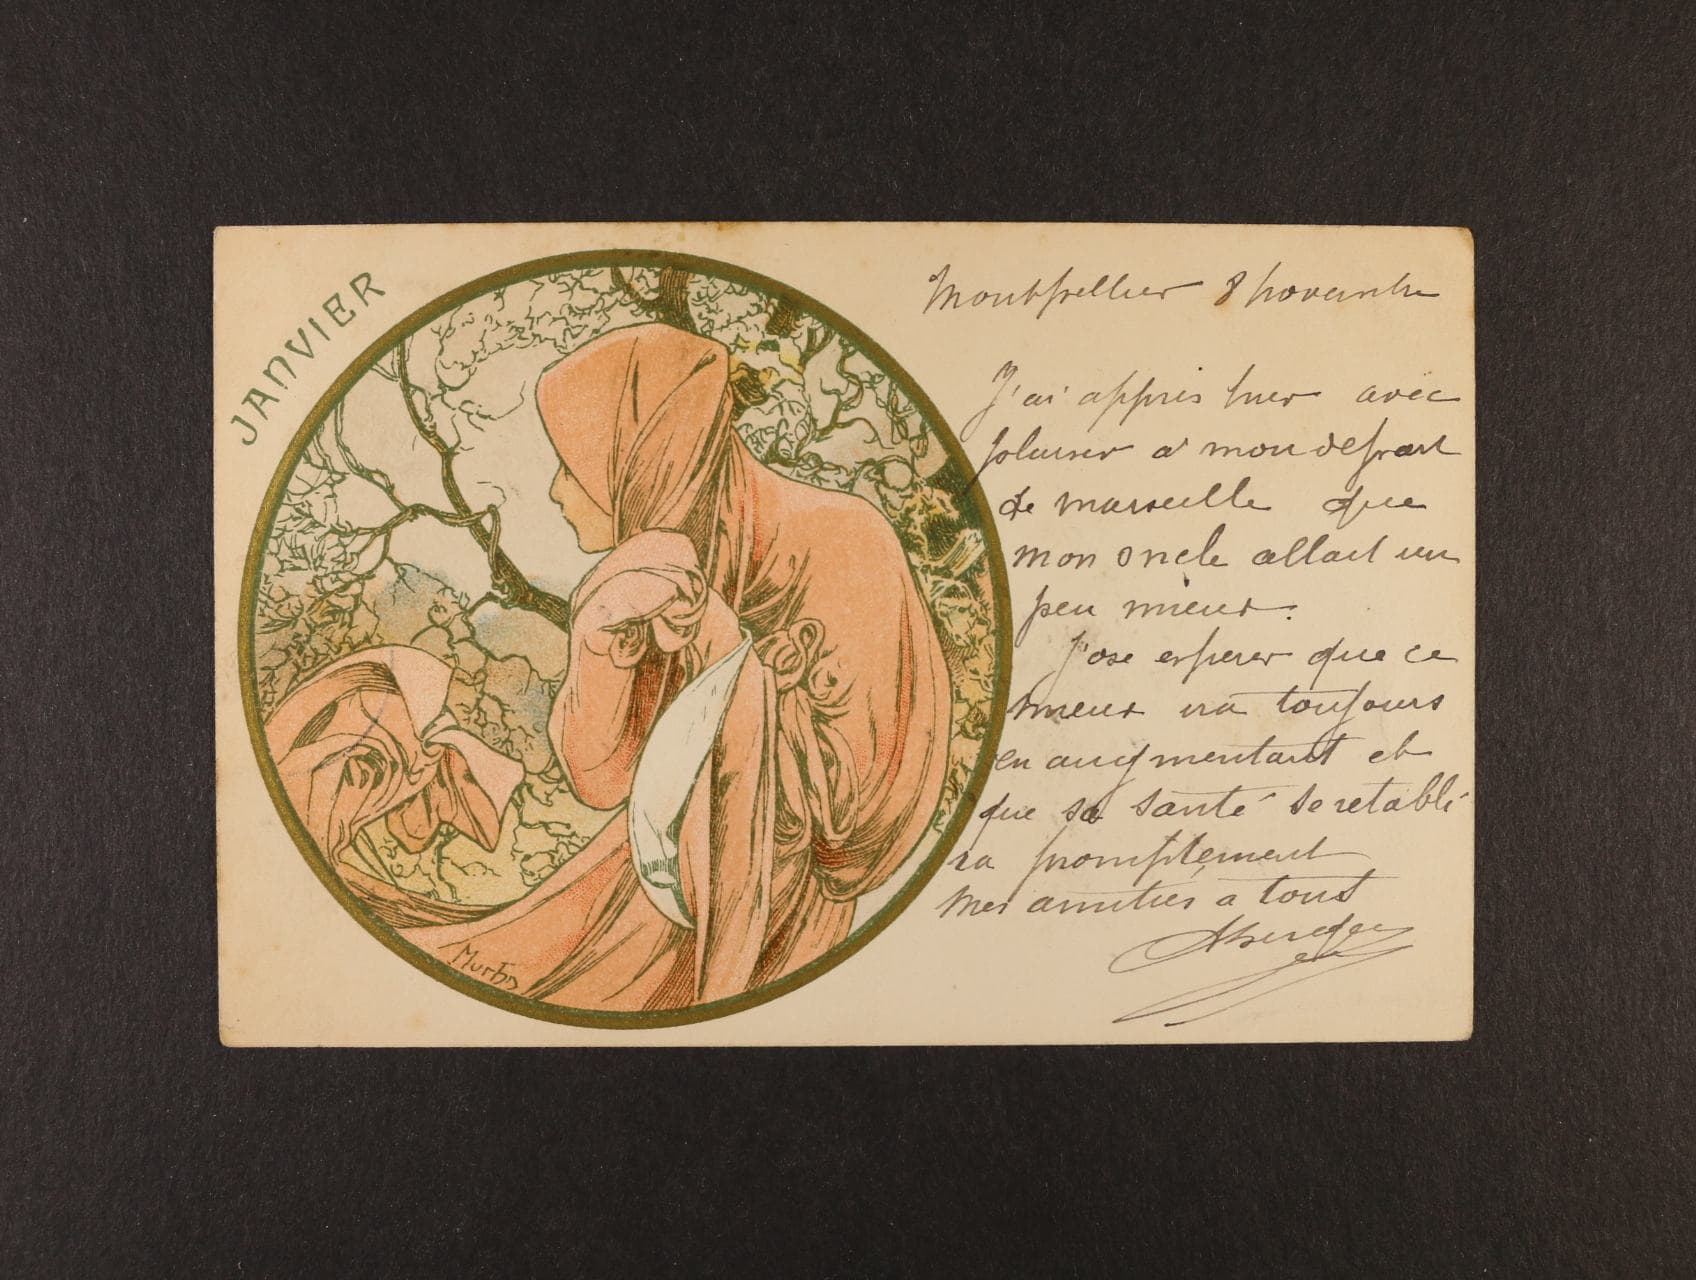 JANVIER
Montpellier 8 novembre
J'ai appris hier avec
plaisir a mon depart
de marseille que
mon oncle allait un
peu mieux.
J'ose esperer que ce
mieux ira toujours
en augmentant et
que sa santé se retabli
ra promptement
Mes amitiés a tous
Mucha